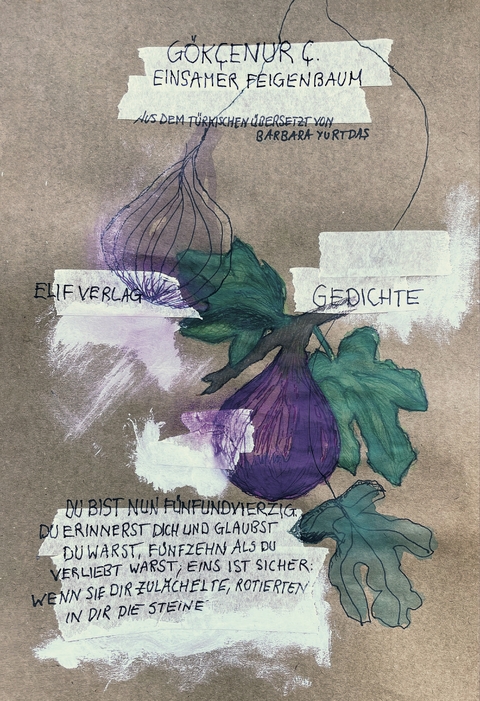 GÖKÇENUR Ç.
EINSAMER FEIGENBAUM
AUS DEM TÜRKISCHEN ÜBERSETZT VON
BARBARA YURTDAS
ELIF VERLAG
GEDICHTE
DU BIST NUN FÜNFUNDVIERZIG
DU ERINNERST DICH UND GLAUBST
DU WARST, FÜNFZEHN ALS DU
VERLIEBT WARST, EINS IST SICHER:
WENN SIE DIR ZULÄCHELTE, ROTIERTEN
IN DIR DIE STEINE